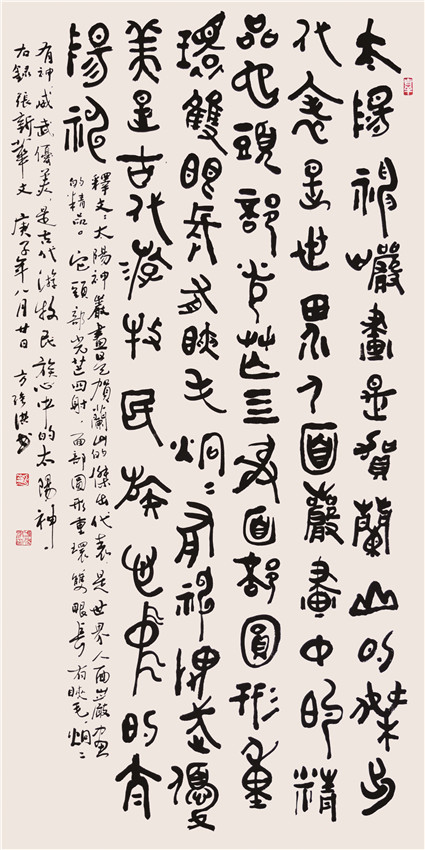 太陽神巖畫是賀蘭山的傑出
代表是世界人面巖畫中的精
品它頭部光芒四射面部圓形重
環雙眼長有睫毛炯〻有神威武優
美是古代游牧民族心中的太
陽神
釋文：太陽神巖畫是賀蘭山的傑出代表，是世界人面巖畫
的精品。它頭部光芒四射，面部圓形重環，雙眼長有睫毛，炯〻
有神威武優美，是古代游牧民族心中的太陽神。
右錄張新華文 庚子年八月廿日